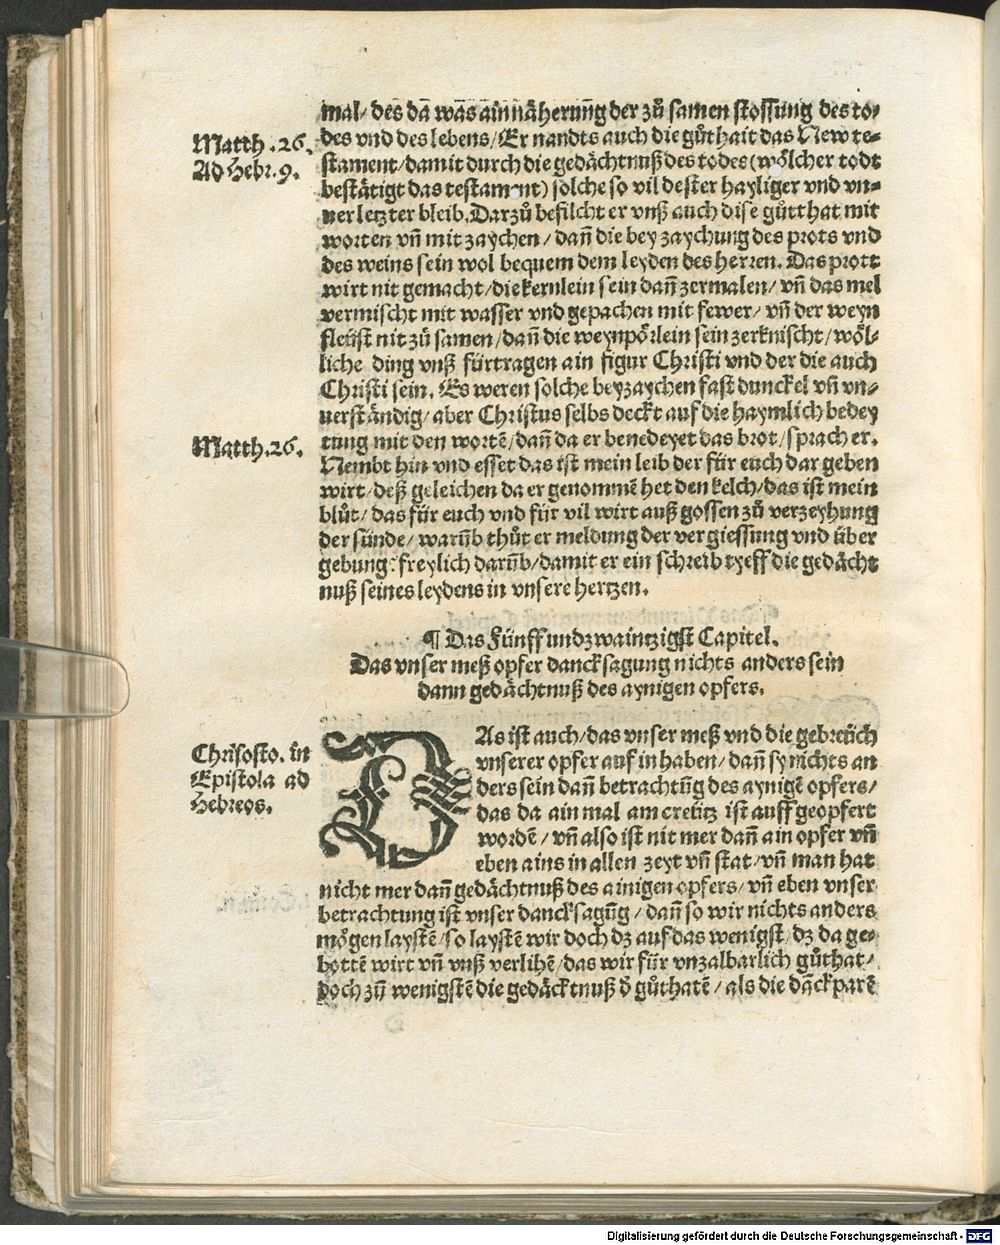 mal/ des dā was ain näherung der zů samen stossung des to⸗
Matth. 26.
des vnd des lebens/ Er nandts auch die gůthait das New te⸗
Ad Hebr. 9.
stament/ damit durch die gedächtnuß des todes (wölcher todt
bestätigt das testament) solche so vil dester hayliger vnd vn⸗
uerletzter bleib. Darzů befilcht er vnß auch dise gůtthat mit
worten vn̄ mit zaychen/ dan̄ die bey zaychung des prots vnd
des weins sein wol bequem dem leyden des herren. Das prott
wirt nit gemacht/ die kernlein sein dan̄ zermalen/ vn̄ das mel
vermischt mit wasser vnd gepachen mit fewer/ vn̄ der weyn
fleüst nit zů samen/ dan̄ die weynpörlein sein zerknischt/ wöl⸗
liche ding vnß fürtragen ain figur Christi vnd der die auch
Christi sein. Es weren solche beyzaychen fast dunckel vn̄ vn⸗
uerständig/ aber Christus selbs deckt auf die haymlich bedey
Matth. 26.
tung mit den wortē/ dan̄ da er benedeyet das brot/ sprach er.
Nembt hin vnd esset das ist mein leib der für euch dar geben
wirt/ deß geleichen da er genommē het den kelch/ das ist mein
blůt/ das für euch vnd für vil wirt auß gossen zů verzeyhung
der sünde/ warūb thůt er meldung der vergiessung vnd über
gebung: freylich darūb/ damit er ein schreib tyeff die gedächt
nuß seines leydens in vnsere hertzen.
¶ Das Fünffundzwaintzigst Capitel.
Das vnser meß opfer dancksagung nichts anders sein
dann gedächtnuß des aynigen opfers.
Chrisosto. in
Epistola ad
Hebreos.
DAs ist auch/ das vnser meß vnd die gebreüch
vnserer opfer auf in haben/ dan̄ sy nichts an
ders sein dan̄ betrachtūg des aynigē opfers/
das da ain mal am creütz ist auff geopfert
wordē/ vn̄ also ist nit mer dan̄ ain opfer vn̄
eben ains in allen zeyt vn̄ stat/ vn̄ man hat
nicht mer dan̄ gedächtnuß des ainigen opfers/ vn̄ eben vnser
betrachtung ist vnser dancksagūg/ dan̄ so wir nichts anders
mögen laystē/ so laystē wir doch dz auf das wenigst/ dz da ge⸗
bottē wirt vn̄ vnß verlihē/ das wir für vnzalbarlich gůthat/
doch zū wenigstē die gedäcktnuß d̕ gůthatē/ als die dāckparē
Digitalisierung gefördert durch die Deutsche Forschungsgemeinschaft - DFG